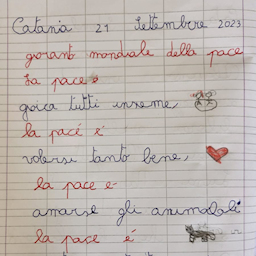 Catania 21 Settembre 2023
giorant mondiale della pace
La pace è
gioca tutti insieme
la pace è
volersi tanto bene,
la pace è
amarsi gli animalali
la pace é